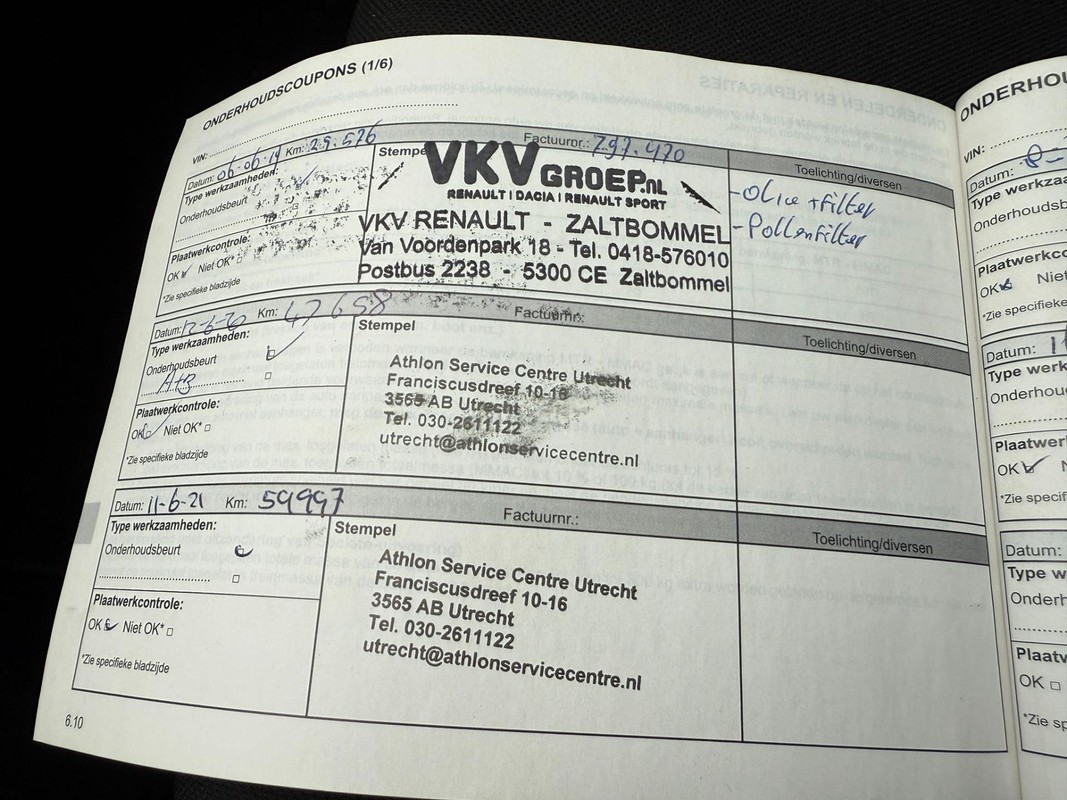 ONDERHOUDSCOUPONS (1/6)
VIN:
Datum: 06-06-19 Km: 29.576 Factuurnr.: 797.470
Type werkzaamheden:
Onderhoudsbeurt
Plaatwerkcontrole:
OK Niet OK*
*Zie specifieke bladzijde
Stempel
VKV GROEP.nl
RENAULT | DACIA | RENAULT SPORT
VKV RENAULT - ZALTBOMMEL
Van Voordenpark 18 - Tel. 0418-576010
Postbus 2238 - 5300 CE Zaltbommel
Toelichting/diversen
-Olie +filter
-Pollenfilter
Datum: 12-6-20 Km: 47658 Factuurnr.:
Type werkzaamheden:
Onderhoudsbeurt
Plaatwerkcontrole:
OK Niet OK*
*Zie specifieke bladzijde
Stempel
Athlon Service Centre Utrecht
Franciscusdreef 10-16
3565 AB Utrecht
Tel. 030-2611122
utrecht@athlonservicecentre.nl
Toelichting/diversen
Datum: 11-6-21 Km: 59997 Factuurnr.:
Type werkzaamheden:
Onderhoudsbeurt
Plaatwerkcontrole:
OK Niet OK*
*Zie specifieke bladzijde
Stempel
Athlon Service Centre Utrecht
Franciscusdreef 10-16
3565 AB Utrecht
Tel. 030-2611122
utrecht@athlonservicecentre.nl
Toelichting/diversen
6.10
ONDERHOU
VIN:
Datum:
Type werkza
Onderhoudsb
Plaatwerkco
OK Niet
*Zie specifieke
Datum:
Type werk
Onderhou
Plaatwer
OK
*Zie specif
Datum:
Type w
Onderh
Plaatw
OK
*Zie sp